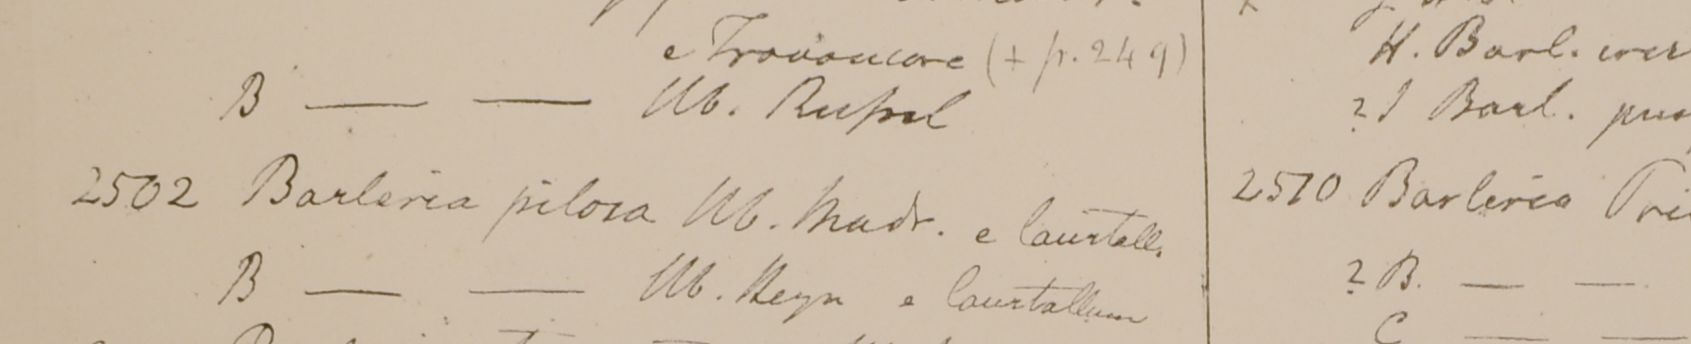 e Travancore (+ p. 249)
B — — Hb. Russel
2502 Barleria pilosa Hb. Madr. e Courtall.
B — — Hb. Heyn e Courtallum
H. Barl.
? I Barl.
2510 Barleria Pri
? B. — —
C — —